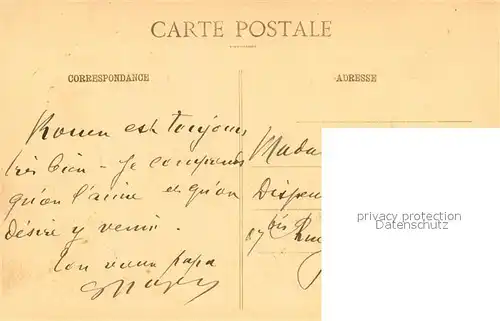 CARTE POSTALE
CORRESPONDANCE
ADRESSE
Rouen est toujours
très bien - Je comprends
qu'on l'aime et qu'on
désire y venir.
Ton vieux papa
Mada
Dispen
67 bis Rue
privacy protection
Datenschutz